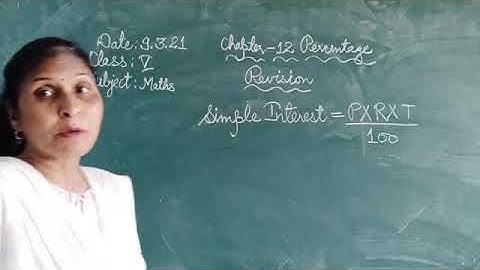 Date: 9.3.21
Class: V
Subject: Maths
Chapter-12 Percentage
Revision
Simple Interest = PXRXT
100